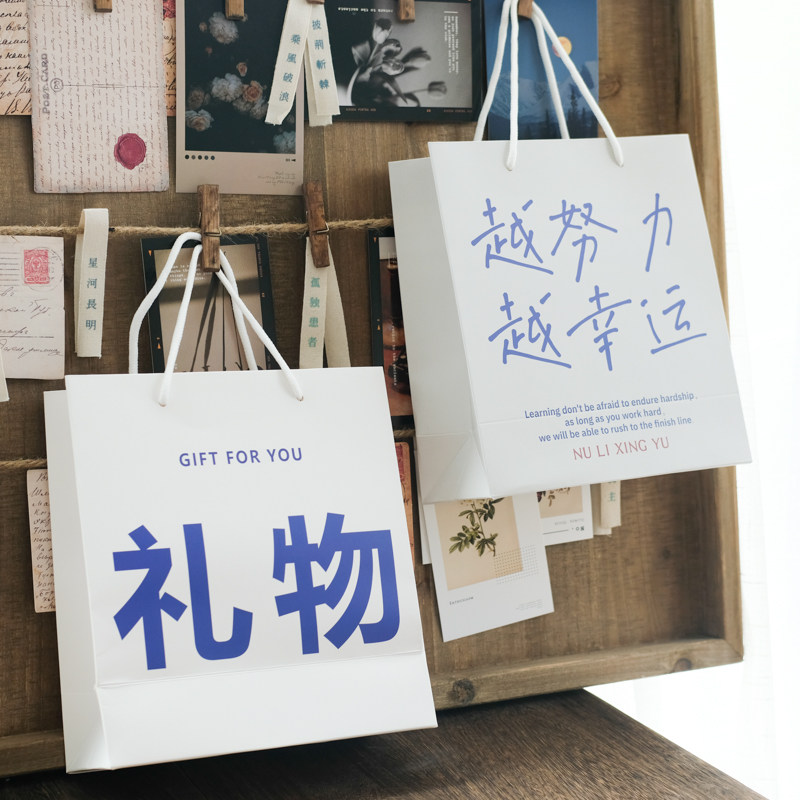 POST CARD
乘風破浪
披荊斬棘
星河長明
孤独患者
越努力
越幸运
Learning don't be afraid to endure hardship,
as long as you work hard,
we will be able to rush to the finish line
NU LI XING YU
GIFT FOR YOU
礼物
主